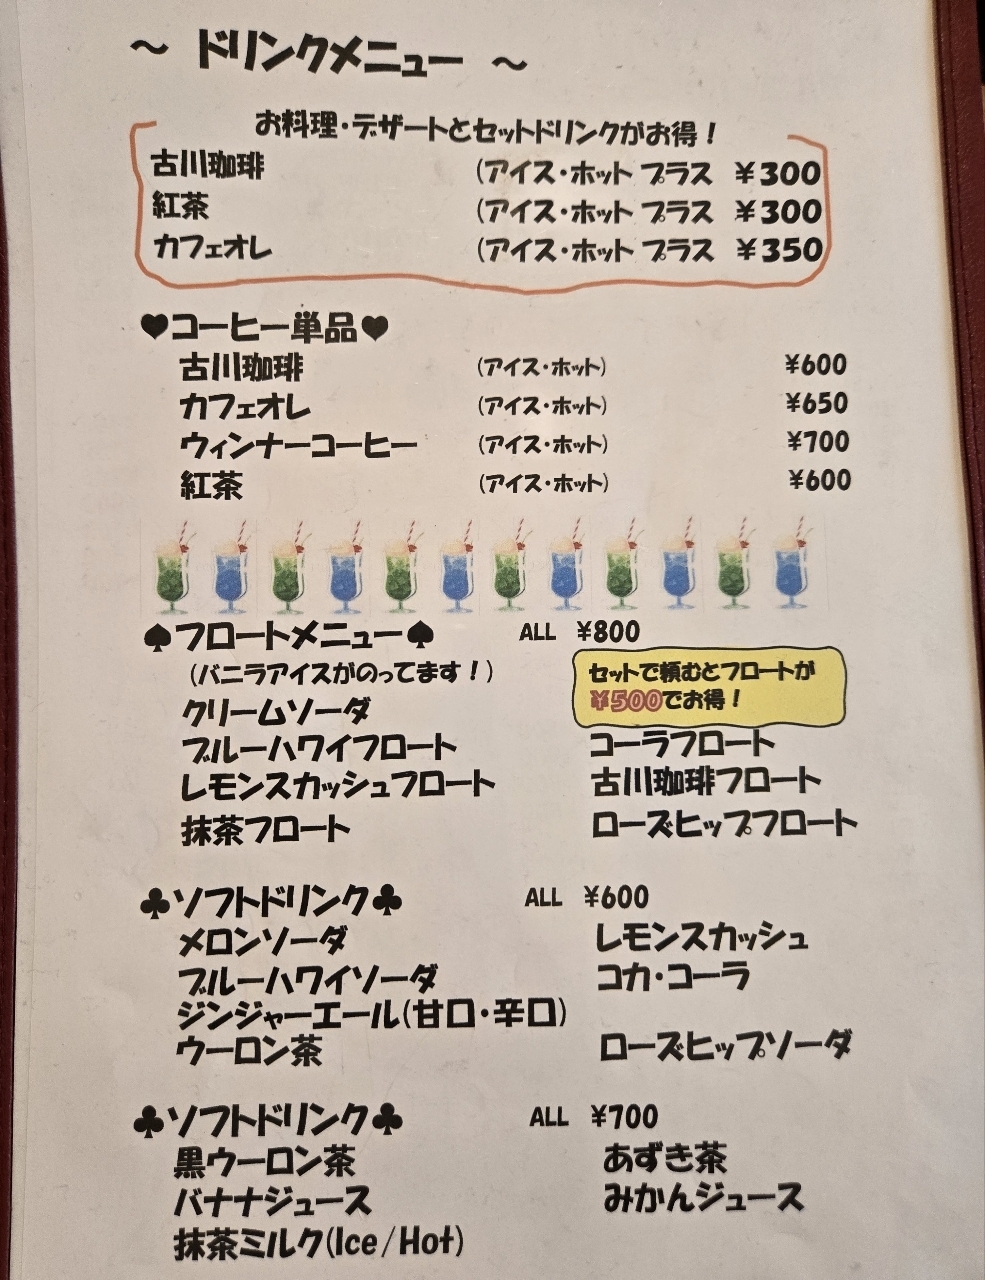 ～ ドリンクメニュー ～
お料理・デザートとセットドリンクがお得！
古川珈琲 (アイス・ホット プラス ￥300
紅茶 (アイス・ホット プラス ￥300
カフェオレ (アイス・ホット プラス ￥350
♥コーヒー単品♥
古川珈琲 (アイス・ホット) ¥600
カフェオレ (アイス・ホット) ¥650
ウィンナーコーヒー (アイス・ホット) ¥700
紅茶 (アイス・ホット) ¥600
♠フロートメニュー♠ ALL ¥800
(バニラアイスがのってます！)
セットで頼むとフロートが
¥500でお得！
クリームソーダ
ブルーハワイフロート コーラフロート
レモンスカッシュフロート 古川珈琲フロート
抹茶フロート ローズヒップフロート
♣ソフトドリンク♣ ALL ¥600
メロンソーダ レモンスカッシュ
ブルーハワイソーダ コカ・コーラ
ジンジャーエール(甘口・辛口)
ウーロン茶 ローズヒップソーダ
♣ソフトドリンク♣ ALL ¥700
黒ウーロン茶 あずき茶
バナナジュース みかんジュース
抹茶ミルク(Ice/Hot)